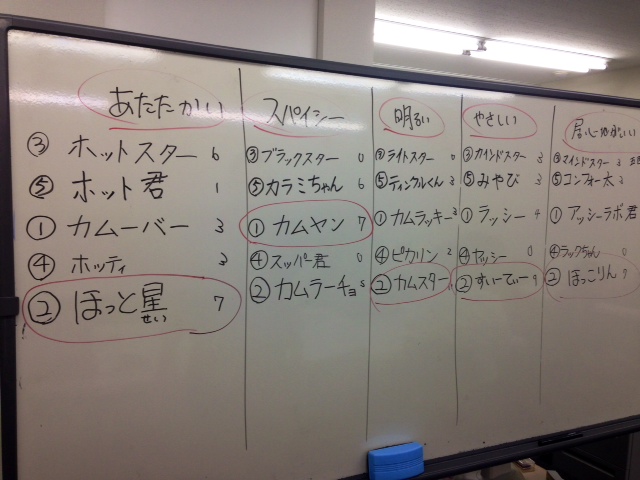 あたたかい
③ ホットスター 6
⑤ ホット君 1
① カムーバー 3
④ ホッティ 3
② ほっと星 7
せい
スパイシー
③ ブラックスター 0
⑤ カラミちゃん 6
① カムヤン 7
④ スッパ君 0
② カムラーチョ 5
明るい
③ ライトスター 0
⑤ ティンクルくん 3
① カムラッキー 3
④ ピカリン 2
② カムスター
やさしい
③ カインドスター 3
⑤ みやび 3
① ラッシー 4
④ ヤッシー 0
② すいーてぃー 9
居心地がいい
③ マインドスター 3
⑤ コンフォー太 3
① アッシーラボ君
④ ラックちゃん 0
② ほっこりん 7